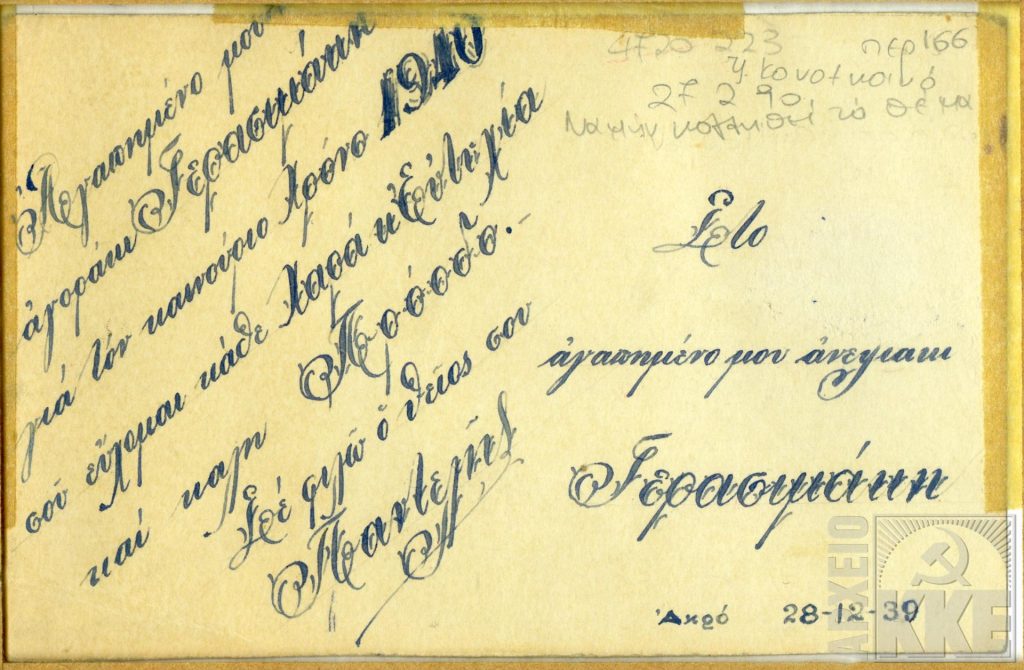 Ἀγαπημένο μου
ἀγοράκι Γερασιμάκη
γιά τόν καινούριο χρόνο 1940
σοῦ εὔχομαι κάθε Χαρά κ Εὐτυχία
καί καλη Πρόοδο.-
Σέ φιλῶ ὁ θεῖος σου
Παντελῆς
4720 223 περ 166
27 2 90
το θέμα
Στο
ἀγαπημένο μου ἀνεψιακι
Γερασιμάκη
Ἀκρό 28-12-39
ΑΡΧΕΙΟ
ΚΚΕ